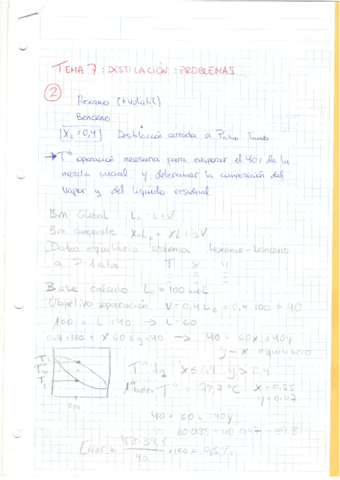 TEMA 7: DESTILACIÓN: PROBLEMAS
2
Hexano (+volatil)
Benceno
X₀=0,4 Destilación cerrada a P=1atm
→ Tª operación necesaria para evaporar el 40% de la
mezcla inicial y determinar la composición del
vapor y del líquido residual
Bm Global L₀=L+V
Bm componente X₀L₀=XL+yV
Datos equilibrio sistema hexano-benceno
a P=1atm T x y
Base cálculo L₀=100 mol
Objetivo separación V=0,4 L₀=0,4·100=40
100=L+40 → L=60
0,4·100=X·60+y·40 → 40=60x+40y
y-x equilibrio
Tª x≤0,4 y>0,4
Tª=77,7°C x=0,35
y=0,47
40=60x+40y
Error= ·100=